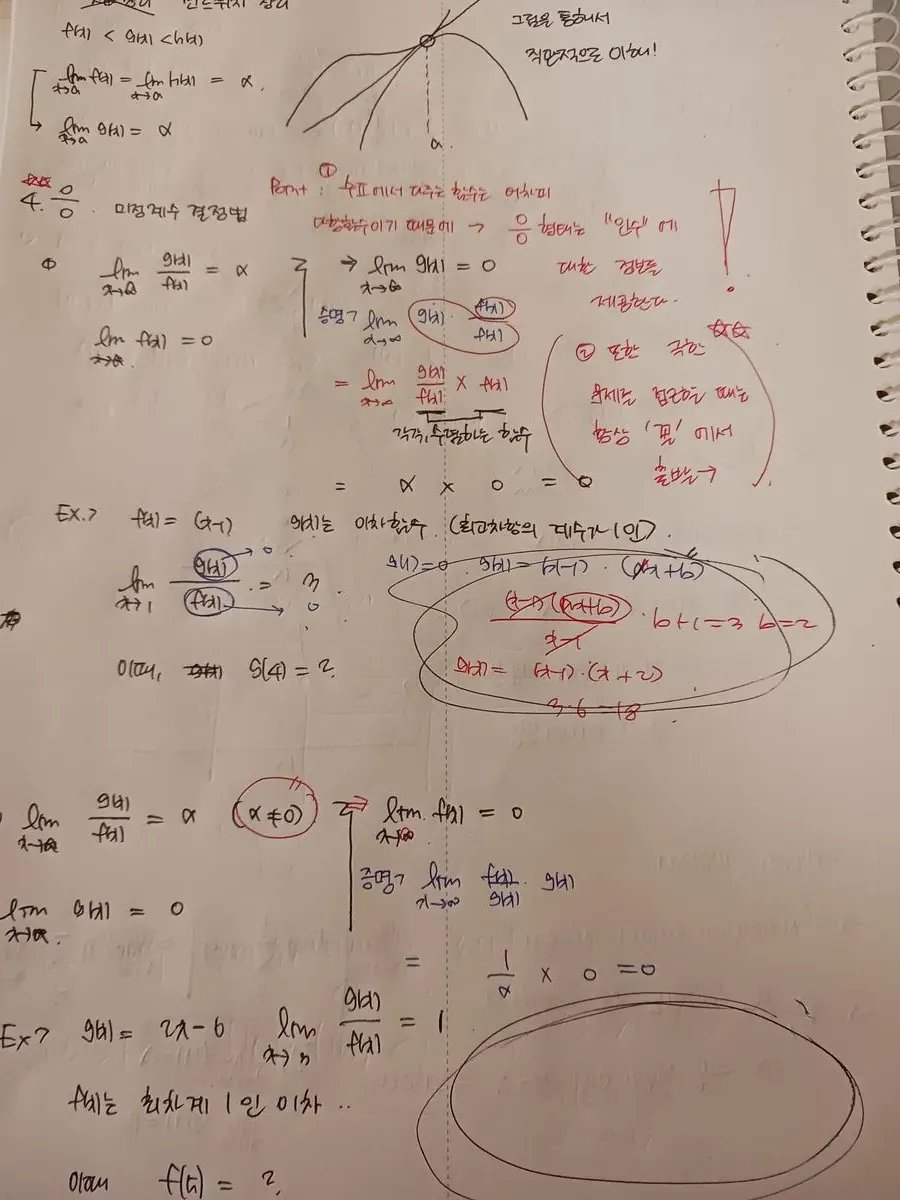 샌드위치 정리
f(x) < g(x) < h(x)
lim x→a f(x) = lim x→a h(x) = α.
lim x→a g(x) = α
그림을 통해서
직관적으로 이해!
a
4. 0/0 . 미정계수 결정법
Point : ① 수표에서 다루는 함수는 어차피
다항함수이기 때문에 → 0/0 형태는 "인수"에
대한 정보를
제공한다.
!
① lim g(x)/f(x) = α
lim f(x) = 0
→ lim g(x) = 0
증명> lim x→∞ g(x) · f(x)/f(x)
= lim x→∞ g(x)/f(x) × f(x)
각각, 수렴하는 함수
= α × 0 = 0
② 또한 극한
문제를 접근할 때는
항상 '꼴'에서
출발→
Ex.> f(x) = (x-1) g(x)는 이차함수 (최고차항의 계수가 1인).
lim x→1 g(x)/f(x) = 3
0
0
이때, g(4) = ?
g(1)=0 g(x) = (x-1) · (x+b)
(x-1)(x+b)/x-1 . b+1=3 b=2
g(x) = (x-1)·(x+2)
3·6=18
lim g(x)/f(x) = α (α≠0)
lim g(x) = 0
⇒ lim f(x) = 0
증명> lim x→∞ f(x)/g(x) · g(x)
= 1/α × 0 = 0
Ex> g(x) = 2x-6 lim g(x)/f(x) = 1
f(x)는 최차계 1인 이차..
이때 f(5) = ?